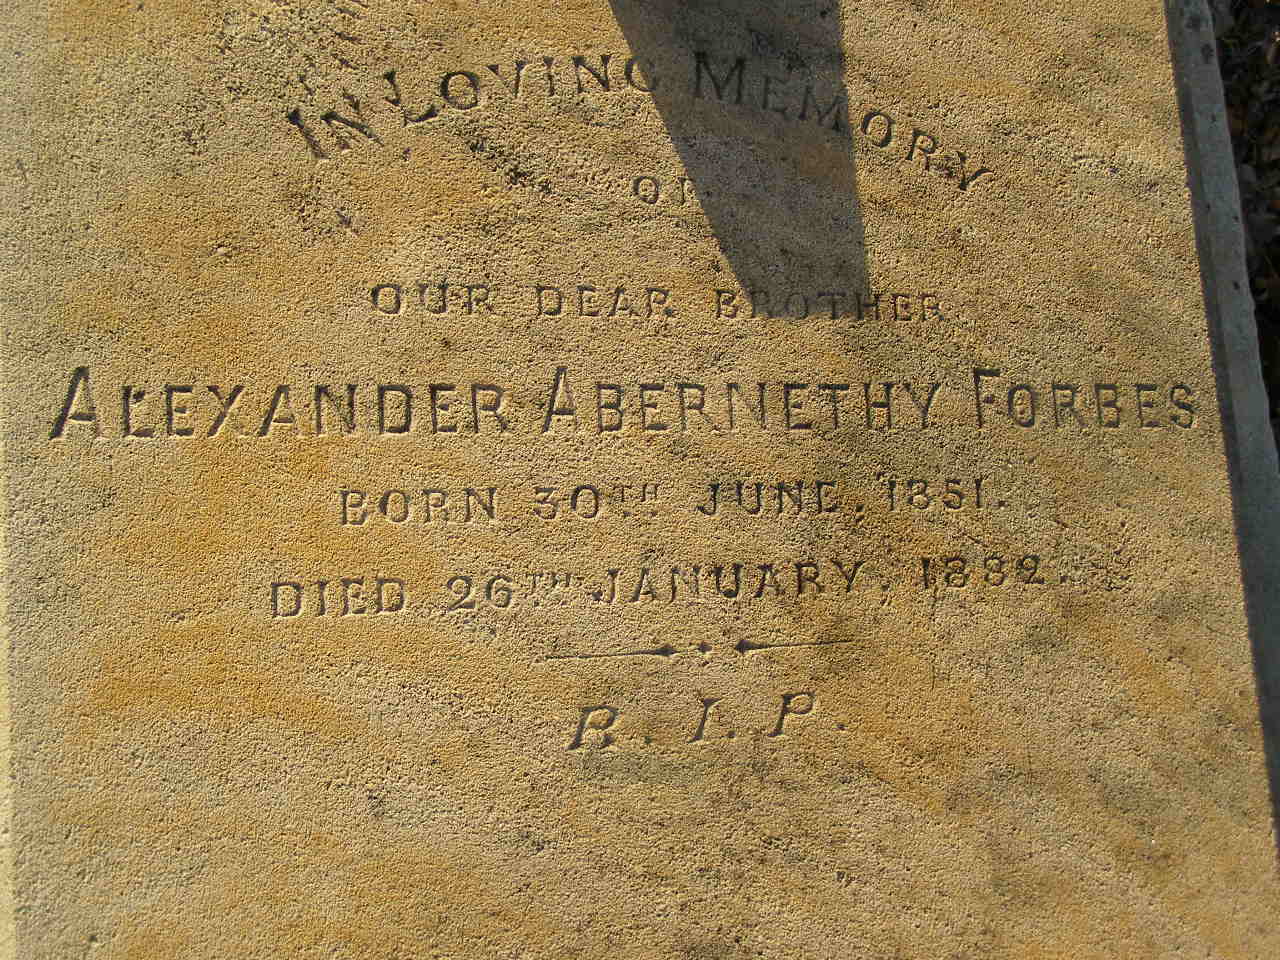 IN LOVING MEMORY
OF
OUR DEAR BROTHER
ALEXANDER ABERNETHY FORBES
BORN 30TH JUNE, 1851.
DIED 26TH JANUARY, 1882.
R. I. P.